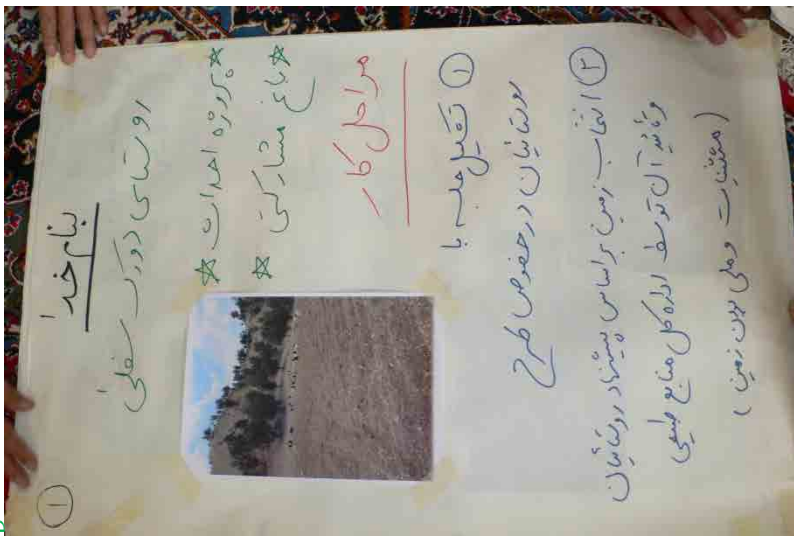 بنام خدا
روستای دورک سفلی
* پروژه احداث *
* باغ مشارکتی
مراحل کار
① تشکیل جلسه با
روستائیان در خصوص طرح
② انتخاب زمین براساس پیشنهاد روستائیان
و تائید آن توسط اداره کل منابع طبیعی
(مستثنیات و ملی بودن زمین)
①